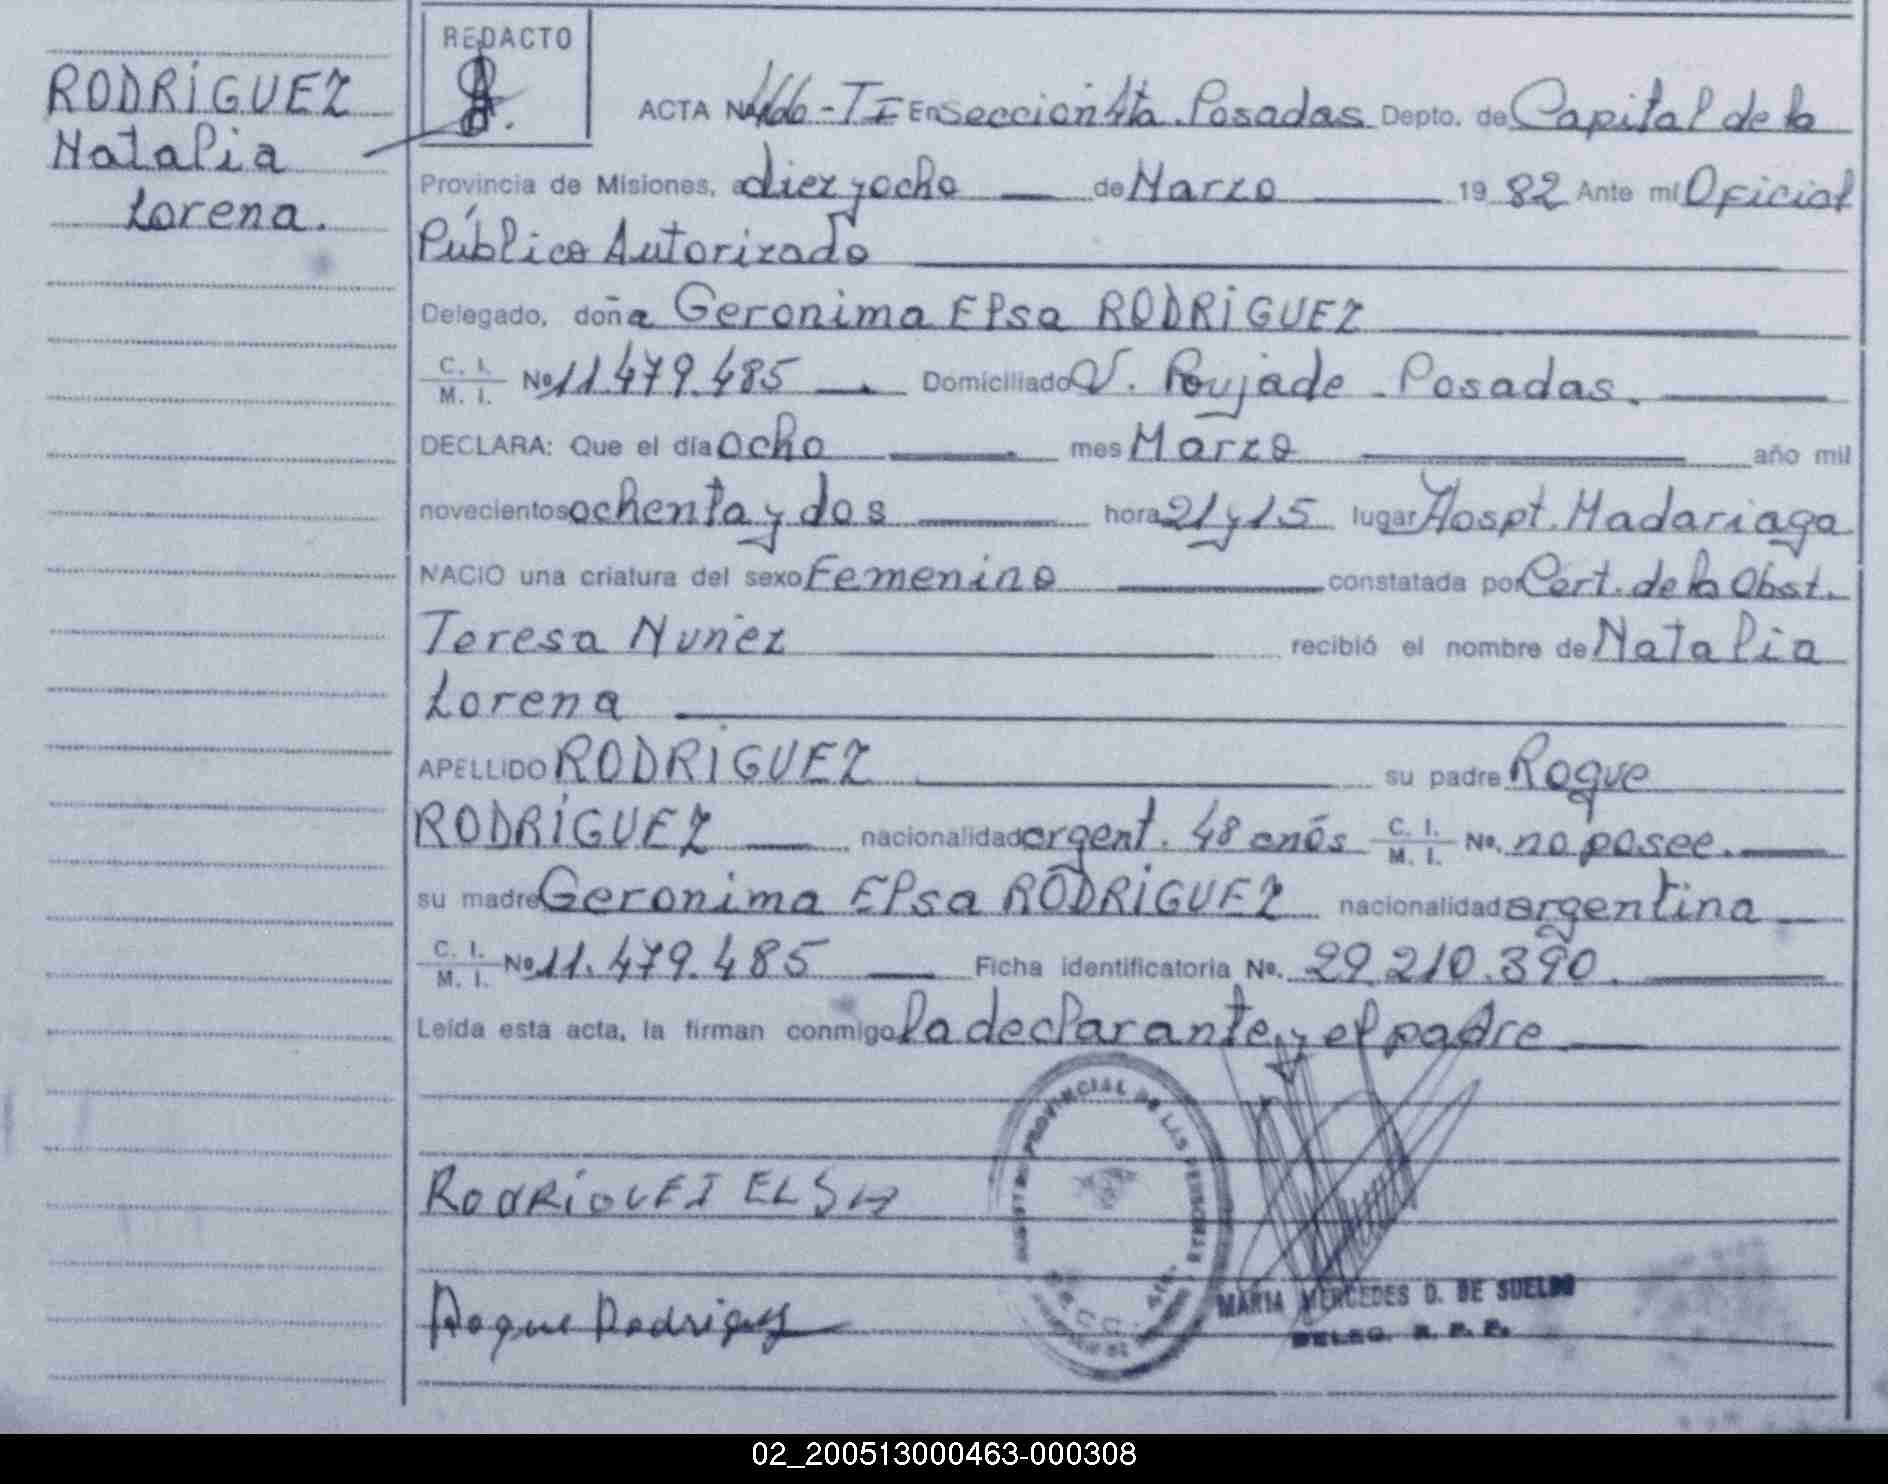 RODRÍGUEZ
Natalia
Lorena.
REDACTO
ACTA Nº 466 - T I En Sección 4ta. Posadas Depto. de Capital de la
Provincia de Misiones, a diez y ocho de Marzo 1982 Ante mí Oficial
Público Autorizado
Delegado, doña Geronima Elsa RODRÍGUEZ
C. I. / M. I. Nº 11.479.485 Domiciliado V. Poujade - Posadas.
DECLARA: Que el día ocho mes Marzo año mil
novecientos ochenta y dos hora 21 y 15 lugar Hospt. Madariaga
NACIO una criatura del sexo Femenino constatada por Cert. de la Obst.
Teresa Nuñez recibió el nombre de Natalia
Lorena
APELLIDO RODRÍGUEZ su padre Roque
RODRÍGUEZ nacionalidad argent. 48 años C. I. / M. I. Nº. no posee.
su madre Geronima Elsa RODRÍGUEZ nacionalidad argentina
C. I. / M. I. Nº 11.479.485 Ficha identificatoria Nº. 29.210.390.
Leída esta acta, la firman conmigo la declarante y el padre
PROVINCIAL DE LAS PERSONAS
RodRíGUEZ ELSA
Roque Rodriguez
MARIA MERCEDES D. DE SUELDO
DELEG. R. P. P.
02_200513000463-000308